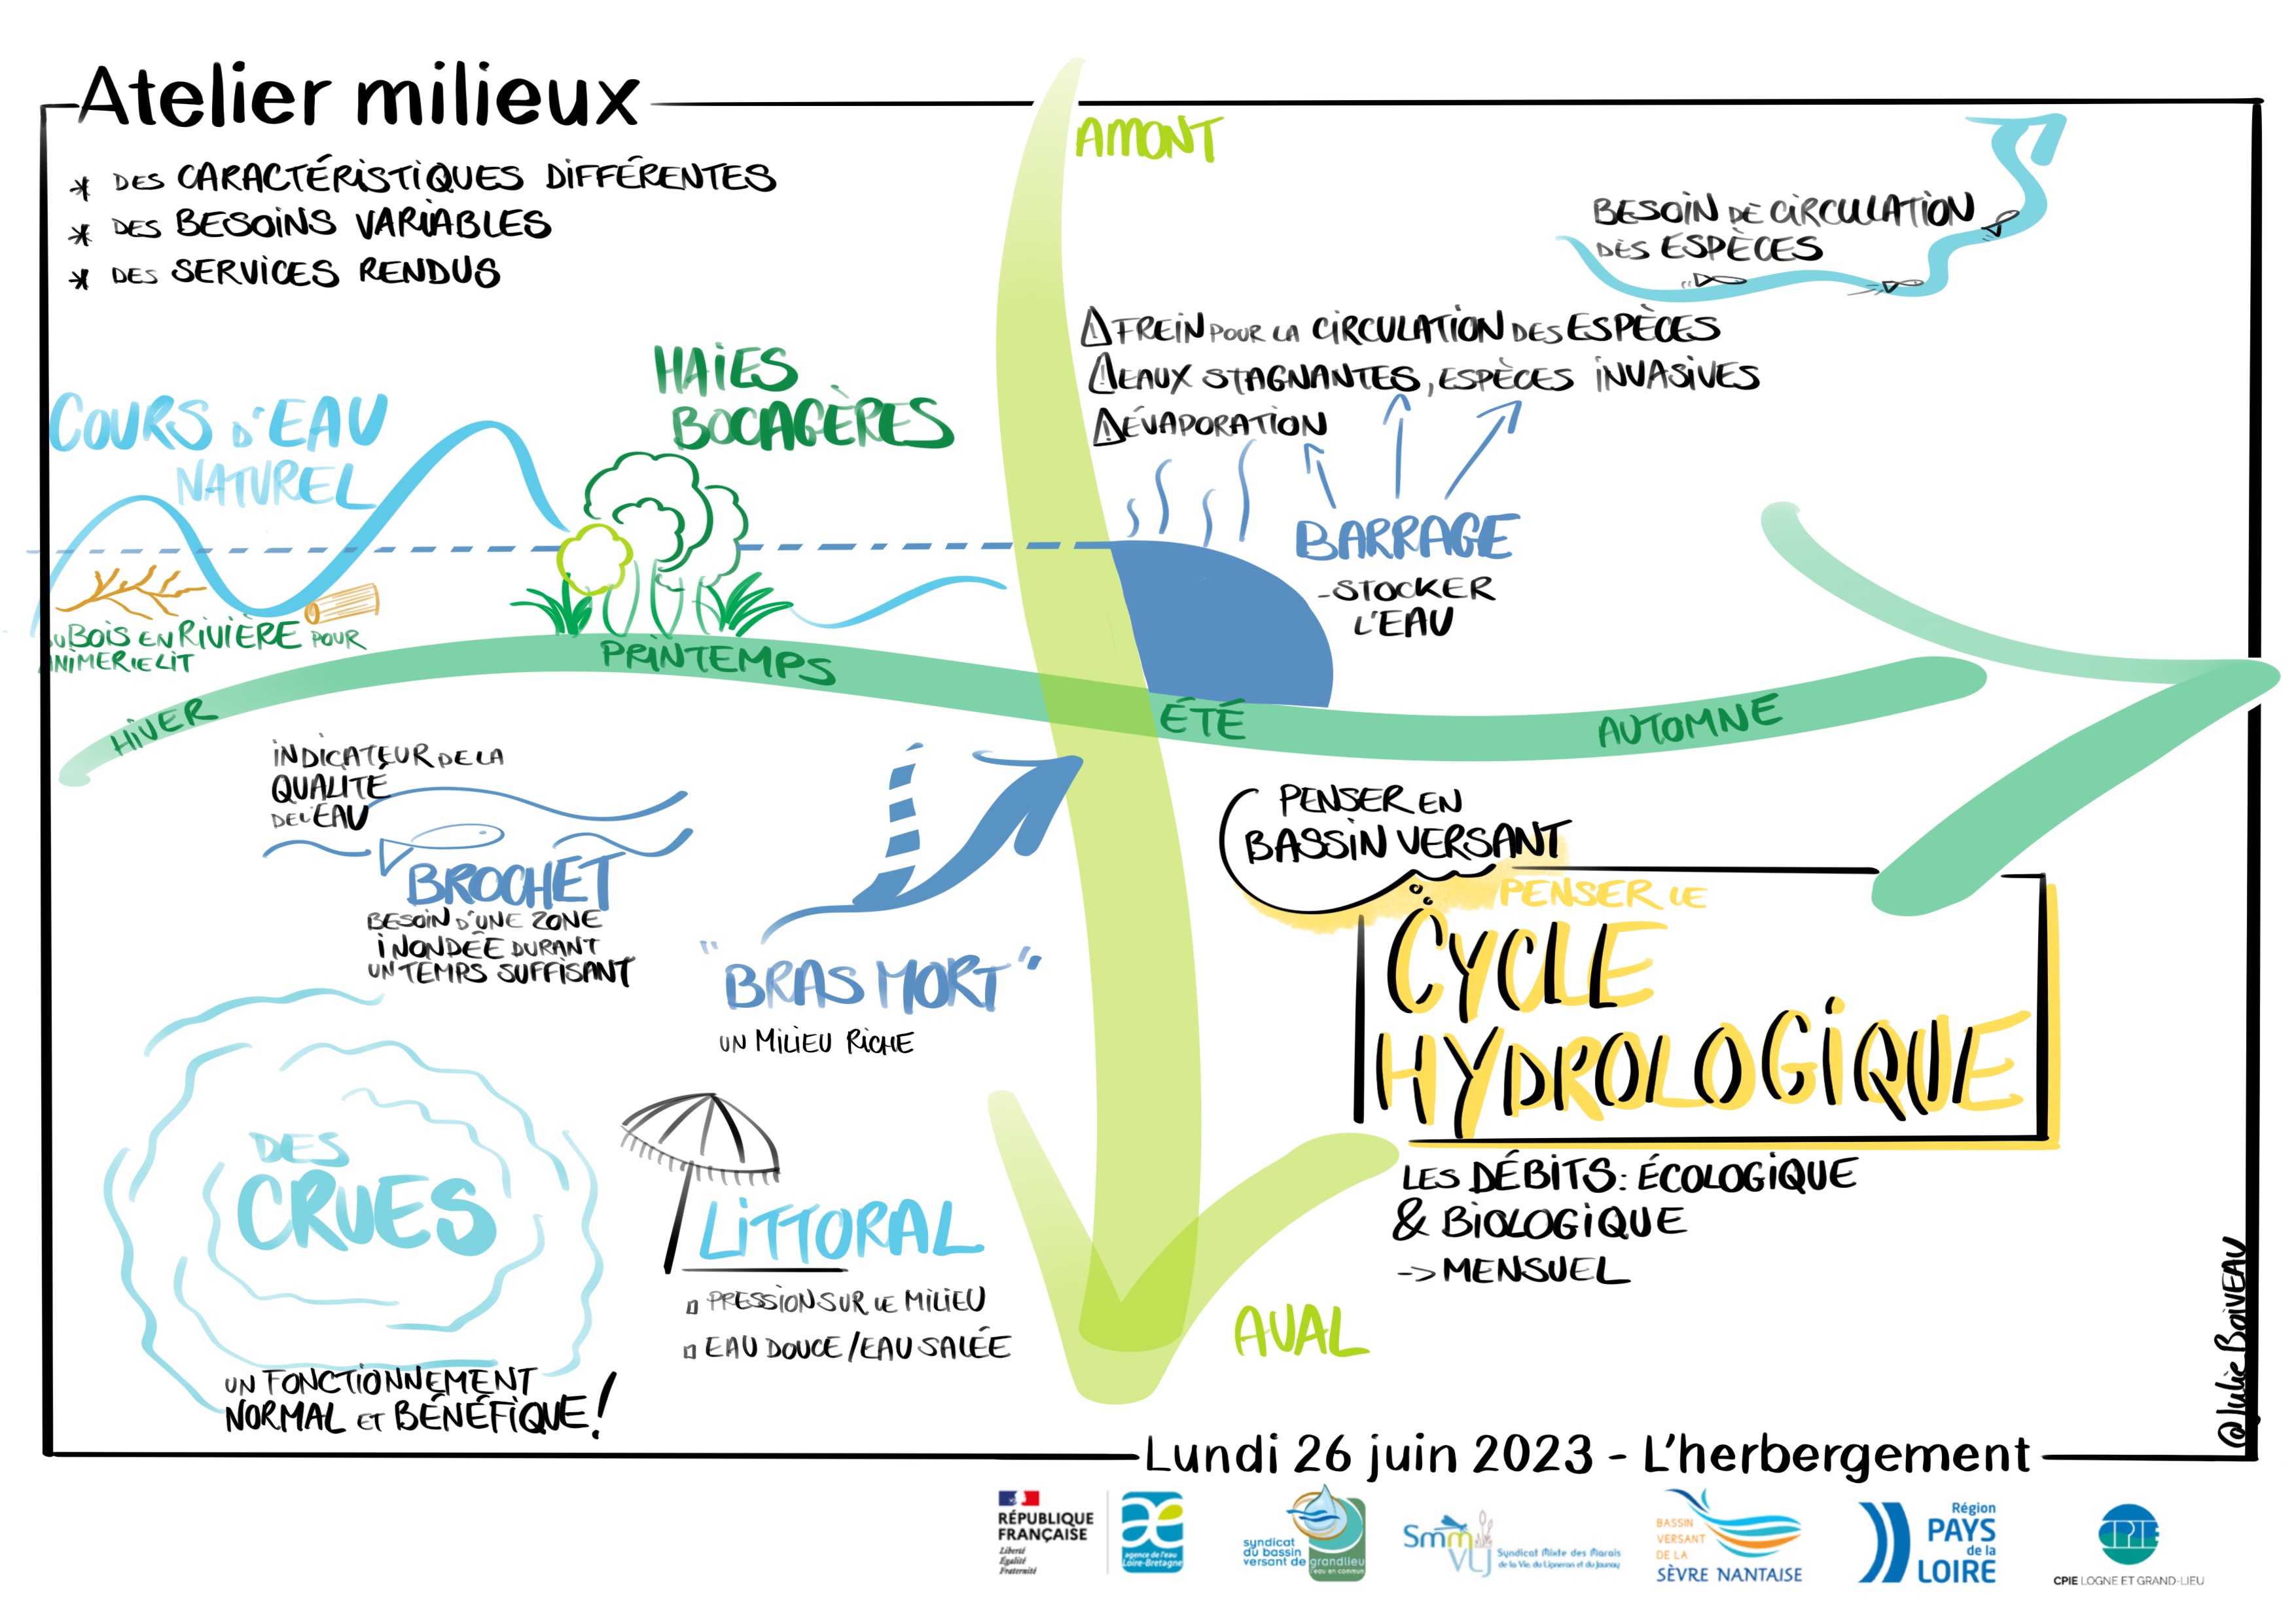 Atelier milieux
* DES CARACTÉRISTIQUES DIFFÉRENTES
* DES BESOINS VARIABLES
* DES SERVICES RENDUS
AMONT
BESOIN DE CIRCULATION
DES ESPÈCES
⚠ FREIN POUR LA CIRCULATION DES ESPÈCES
⚠ EAUX STAGNANTES, ESPÈCES INVASIVES
⚠ ÉVAPORATION
HAIES
BOCAGÈRES
COURS D'EAU
NATUREL
BARRAGE
-STOCKER
L'EAU
DU BOIS EN RIVIÈRE POUR
ANIMER LE LIT
HIVER
PRINTEMPS
ÉTÉ
AUTOMNE
INDICATEUR DE LA
QUALITÉ
DE L'EAU
BROCHET
BESOIN D'UNE ZONE
INONDÉE DURANT
UN TEMPS SUFFISANT
"BRAS MORT"
UN MILIEU RICHE
PENSER EN
BASSIN VERSANT
PENSER LE
CYCLE
HYDROLOGIQUE
LES DÉBITS : ÉCOLOGIQUE
& BIOLOGIQUE
-> MENSUEL
DES
CRUES
UN FONCTIONNEMENT
NORMAL ET BÉNÉFIQUE !
LITTORAL
PRESSION SUR LE MILIEU
EAU DOUCE / EAU SALÉE
AVAL
@Julie Boiveau
Lundi 26 juin 2023 - L'herbergement
RÉPUBLIQUE
FRANÇAISE
Liberté
Égalité
Fraternité
agence de l'eau
Loire-Bretagne
syndicat
du bassin
versant de grandlieu
l'eau en commun
SmmVLJ
Syndicat Mixte des Marais
de la Vie, du Ligneron et du Jaunay
BASSIN
VERSANT
DE LA
SÈVRE NANTAISE
Région
PAYS
de la
LOIRE
CPIE
CPIE LOGNE ET GRAND-LIEU